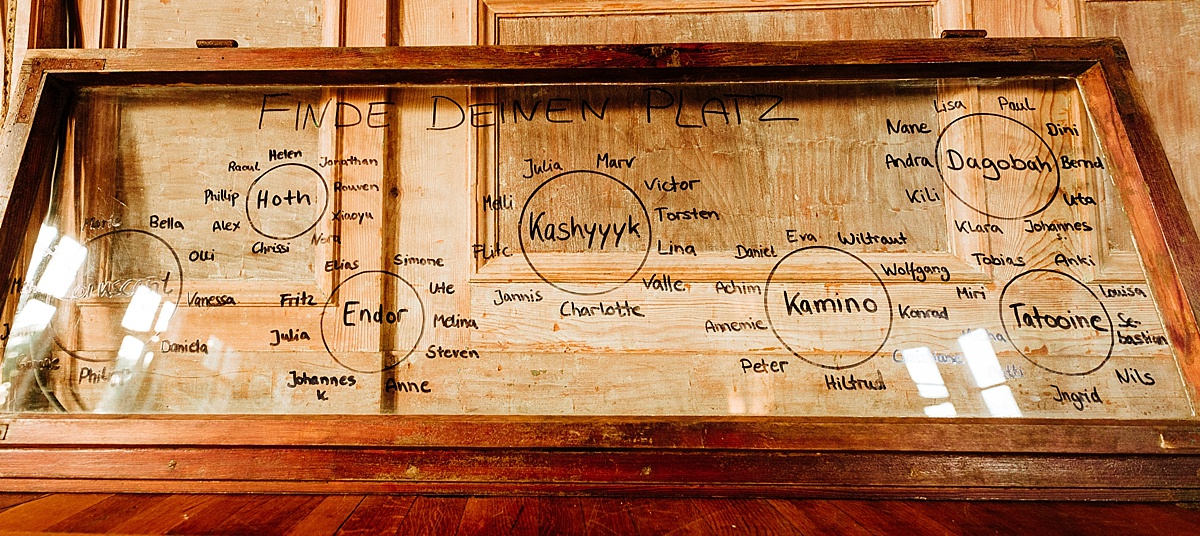 FINDE DEINEN PLATZ
Bella
Olli
Vanessa
Daniela
Hoth
Helen
Jonathan
Rouven
Xiaoyu
Nora
Chrissi
Alex
Phillip
Raoul
Endor
Elias
Simone
Ute
Melina
Steven
Anne
Johannes
K
Julia
Fritz
Kashyyyk
Julia
Marv
Victor
Torsten
Lina
Valle
Charlotte
Jannis
Melli
Kamino
Daniel
Eva
Wiltraut
Wolfgang
Konrad
Hiltrud
Peter
Annemie
Achim
Dagobah
Lisa
Paul
Dini
Bernd
Uta
Johannes
Klara
Kili
Andra
Nane
Tatooine
Tobias
Anki
Louisa
Se-
bastian
Nils
Ingrid
Miri